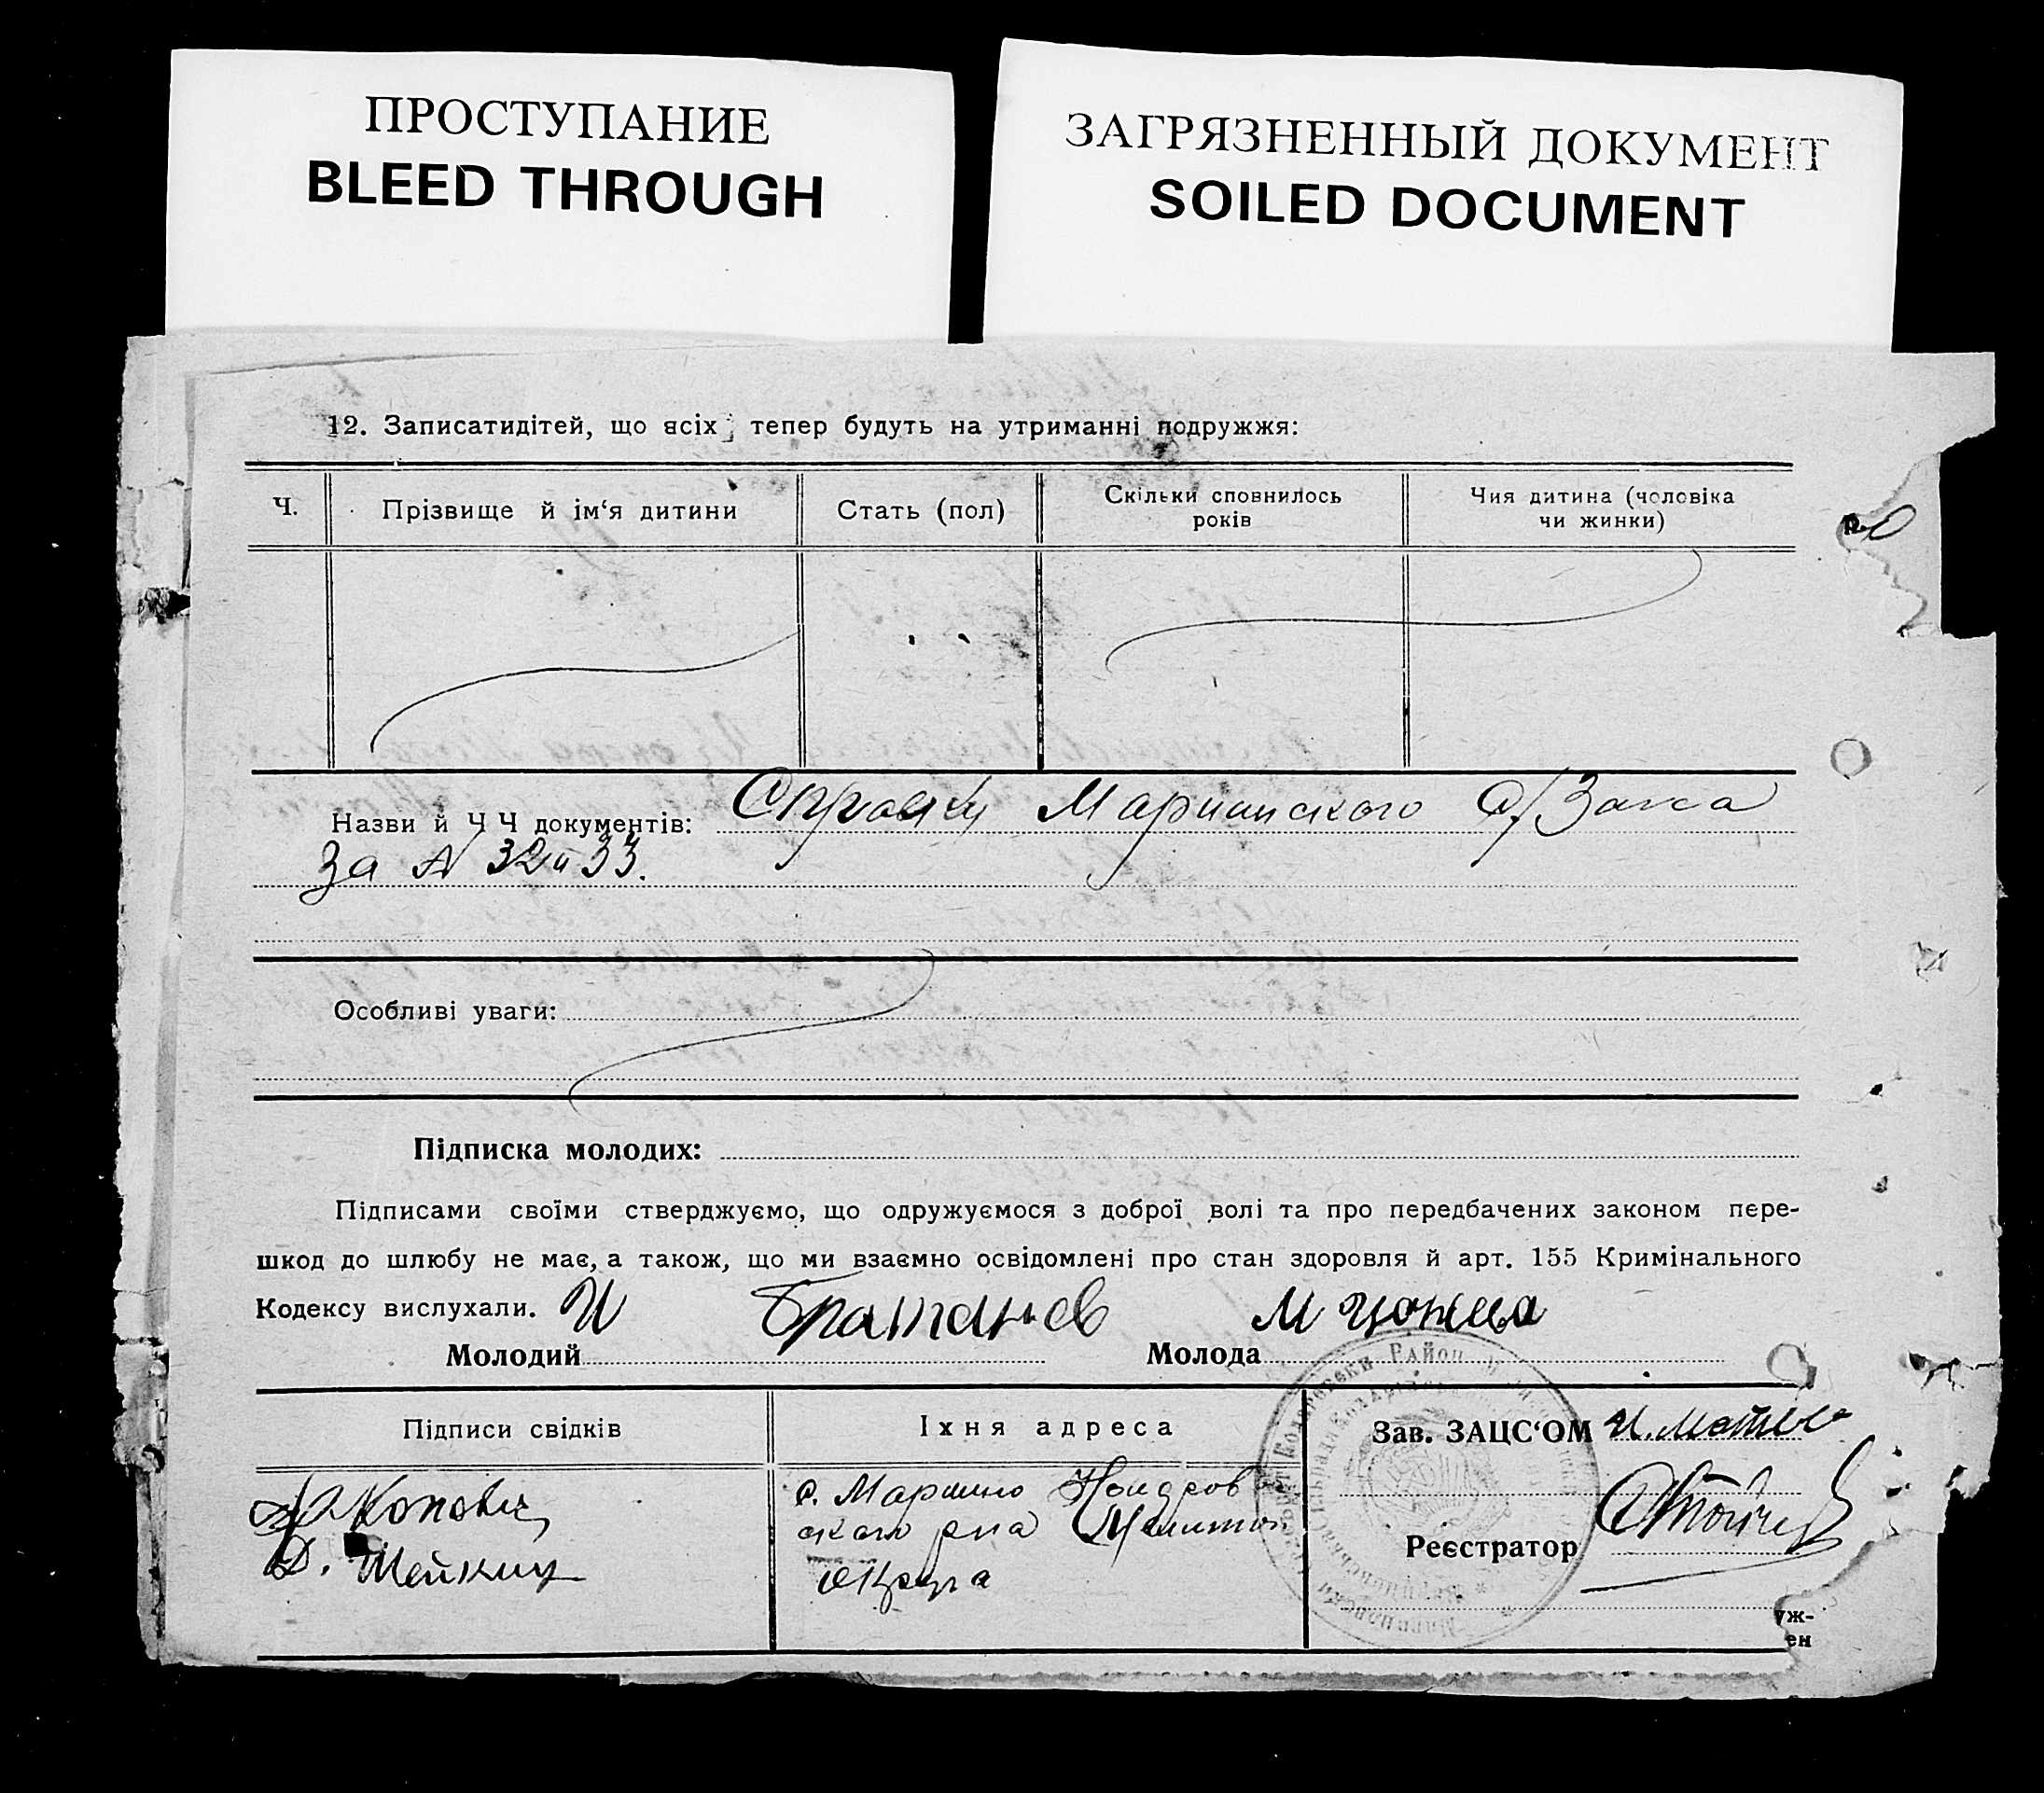 ПРОСТУПАНИЕ
BLEED THROUGH
ЗАГРЯЗНЕННЫЙ ДОКУМЕНТ
SOILED DOCUMENT
12. Записатидітей, що всіх тепер будуть на утриманні подружжя:
Ч.
Прізвище й ім‘я дитини
Стать (пол)
Скільки сповнилось
років
Чия дитина (чоловіка
чи жинки)
Назви й Ч Ч документів: Справки Мариинского С/Загса
За N 32 и 33.
Особливі уваги:
Підписка молодих:
Підписами своїми стверджуємо, що одружуємося з доброї волі та про передбачених законом пере-
шкод до шлюбу не має, а також, що ми взаємно освідомлені про стан здоровля й арт. 155 Кримінального
Кодексу вислухали.
И Братанов
М
Молодий
Молода
Підписи свідків
Їхня адреса
Зав. ЗАЦС‘ОМ
с.
ского р-на
округа
Д.
Реєстратор
уж-
ен